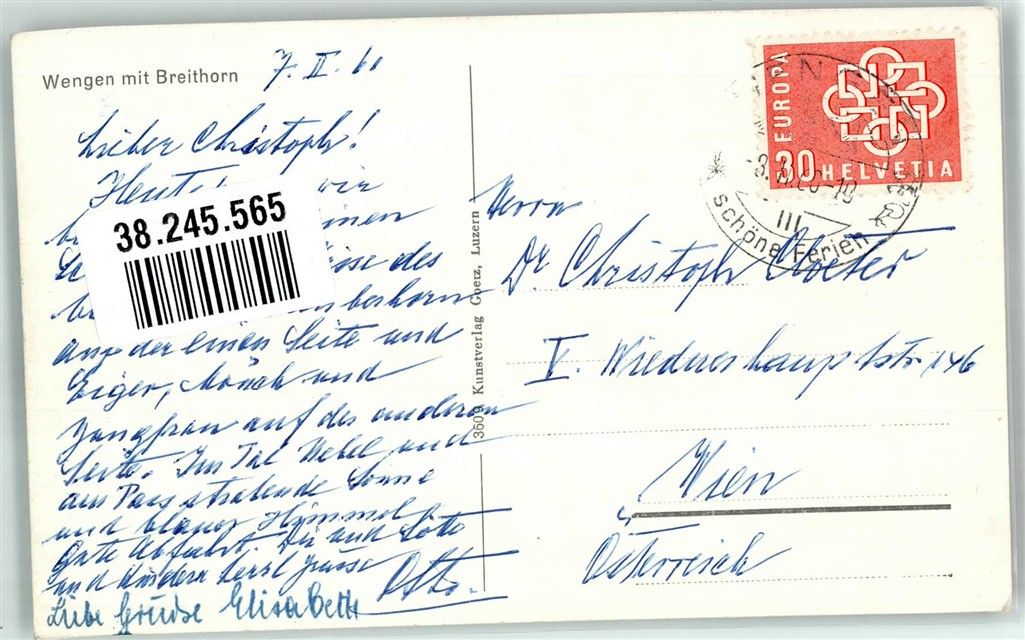 Wengen mit Breithorn
7. II. 60
Lieber Christoph!
Heute wir
einen
des
auf der einen Seite und
Eiger, Mönch und
Jungfrau auf der anderen
Seite. Im Tal Nebel und
am Pass strahlende Sonne
und blauer Himmel
Gute Abfahrt. Dir und
und Kindern herzl Grüsse
Otto.
Liebe Grüsse Elisabeth
38.245.565
3609 Kunstverlag Goetz, Luzern
EUROPA
30 HELVETIA
WENGEN
-8.II.60-10
III
schöne Ferien
Herrn
Dr Christoph
V. Wiedner hauptstr. 146
Wien
Österreich